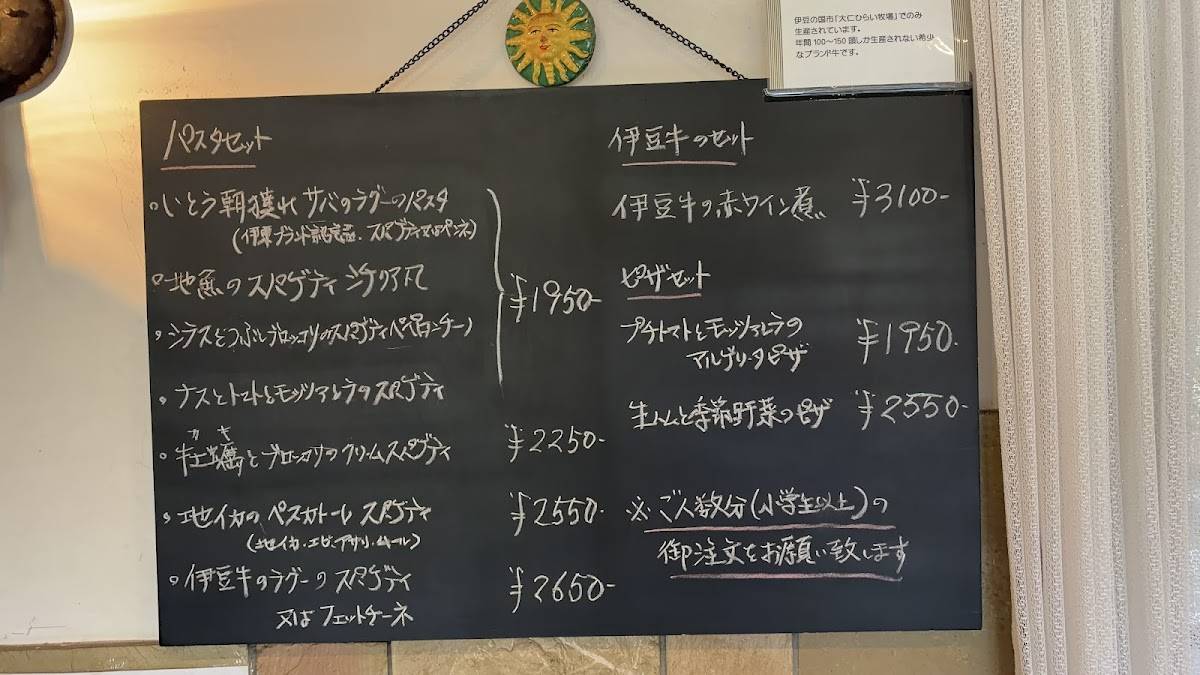 伊豆の国市「大仁ひらい牧場」でのみ
生産されています。
年間100〜150頭しか生産されない希少
なブランド牛です。
パスタセット
いとう朝獲れサバのラグーのパスタ
(伊東ブランド認定品、スパゲティ又はペンネ)
地魚のスパゲティ シケリア風
¥1950-
シラスとつぶしブロッコリのスパゲティペペロンチーノ
ナスとトマトとモッツァレラのスパゲティ
カキ
牡蠣とブロッコリのクリームスパゲティ ¥2250-
地イカのペスカトーレスパゲティ ¥2550-
(地イカ・エビ・アサリ・ムール)
伊豆牛のラグーのスパゲティ ¥2650-
又はフェットチーネ
伊豆牛のセット
伊豆牛の赤ワイン煮 ¥3100-
ピザセット
プチトマトとモッツァレラの
マルゲリータピザ ¥1950-
生ハムと季節野菜のピザ ¥2550-
※ご人数分(小学生以上)の
御注文をお願い致します